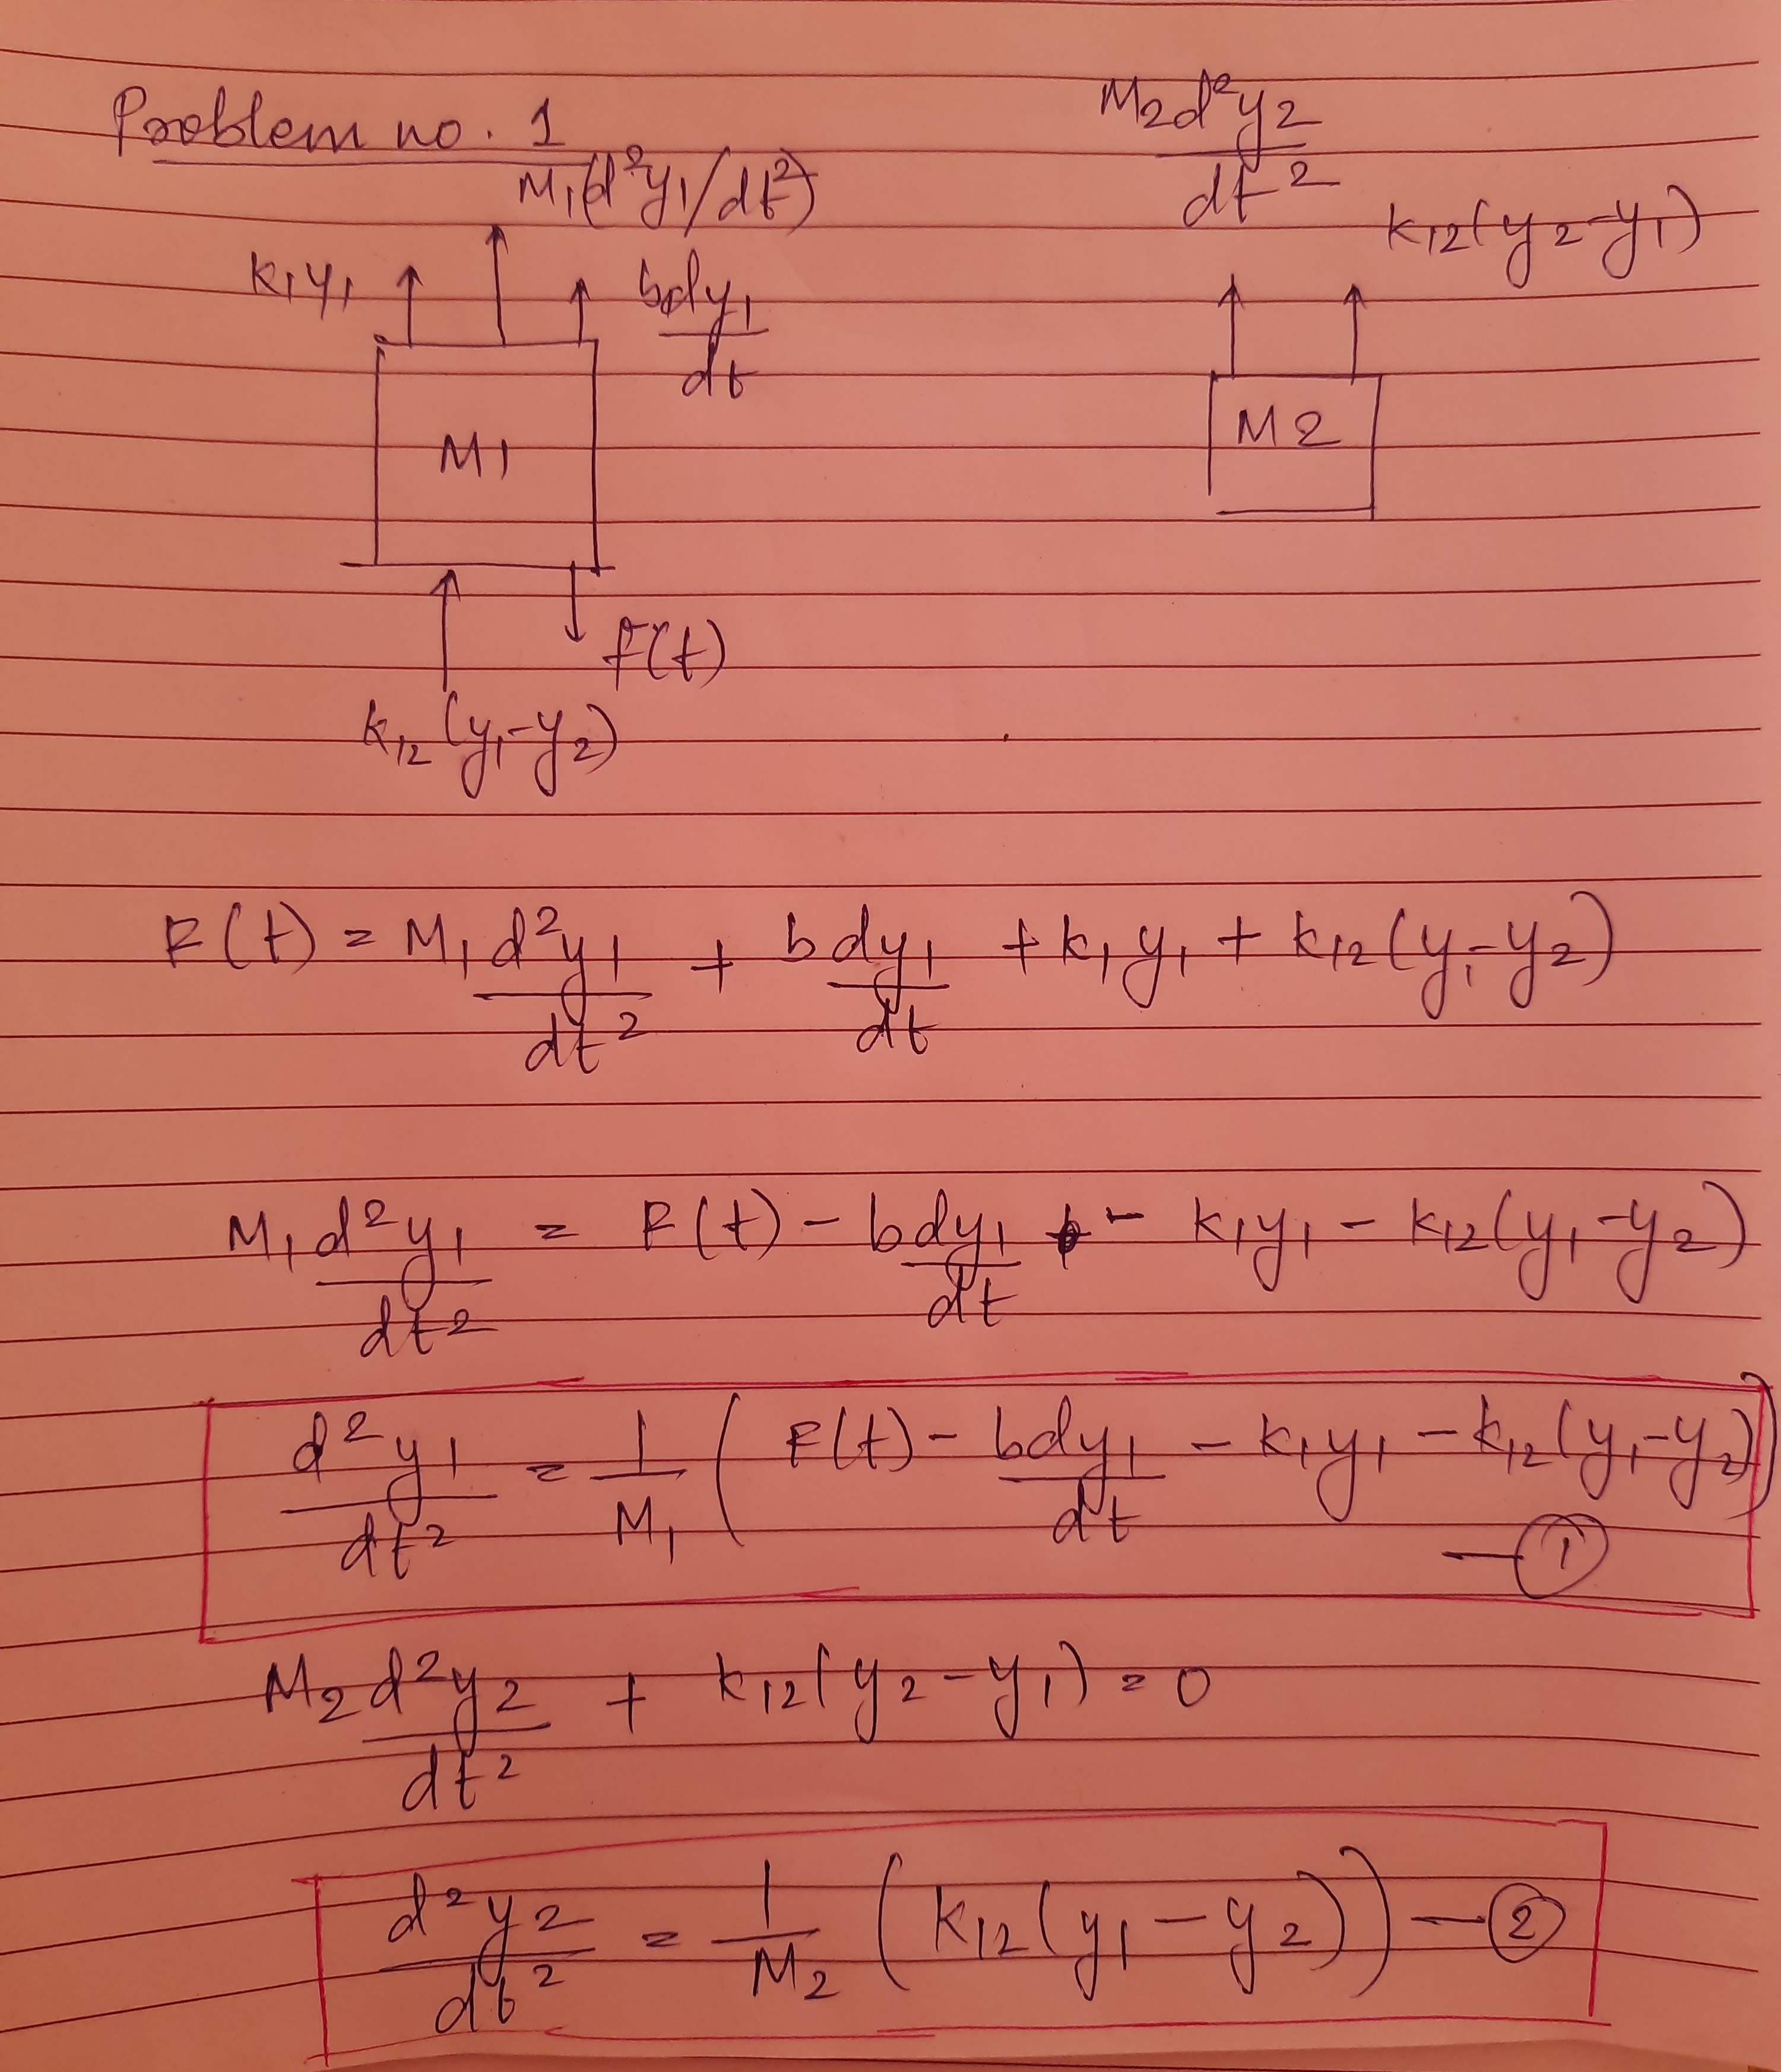 Problem no. 1
M₁(d²y₁/dt²)
k₁y₁
bdy₁/dt
M1
F(t)
k₁₂(y₁-y₂)
M₂d²y₂/dt²
k₁₂(y₂-y₁)
M2
F(t) = M₁d²y₁/dt² + bdy₁/dt + k₁y₁ + k₁₂(y₁-y₂)
M₁d²y₁/dt² = F(t) - bdy₁/dt - k₁y₁ - k₁₂(y₁-y₂)
d²y₁/dt² = 1/M₁ (F(t) - bdy₁/dt - k₁y₁ - k₁₂(y₁-y₂))
—①
M₂d²y₂/dt² + k₁₂(y₂-y₁) = 0
d²y₂/dt² = 1/M₂ (k₁₂(y₁-y₂)) —②